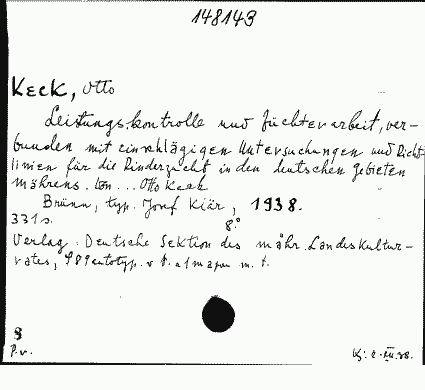 148143
Keck, Otto
Leistungskontrolle und Züchterarbeit, ver-
bunden mit einschlägigen Untersuchungen und Richt-
linien für die Rinderzucht in den deutschen Gebieten
Mährens. Von ... Otto Keck
Brünn, typ. Josef Klär, 1938.
331 s. 8°
Verlag: Deutsche Sektion des mähr. Landeskultur-
rates,
8
P.v.